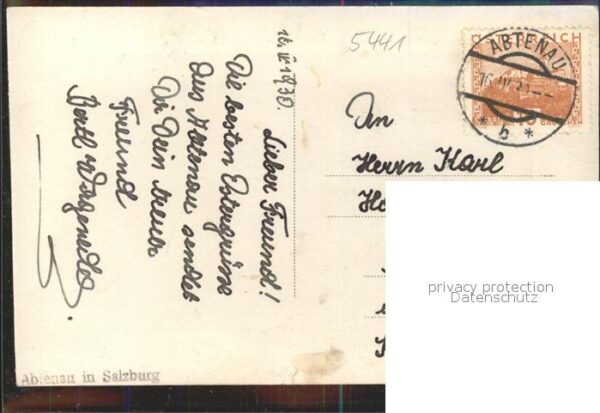 16. IV 1930.
Lieber Freund!
Die besten Ostergrüße
aus Abtenau sendet
Dir Dein treuer
Freund
Bertl
5441
ÖSTERREICH
ABTENAU
16. IV. 30
* b *
An
Herrn Karl
privacy protection
Datenschutz
Abtenau in Salzburg